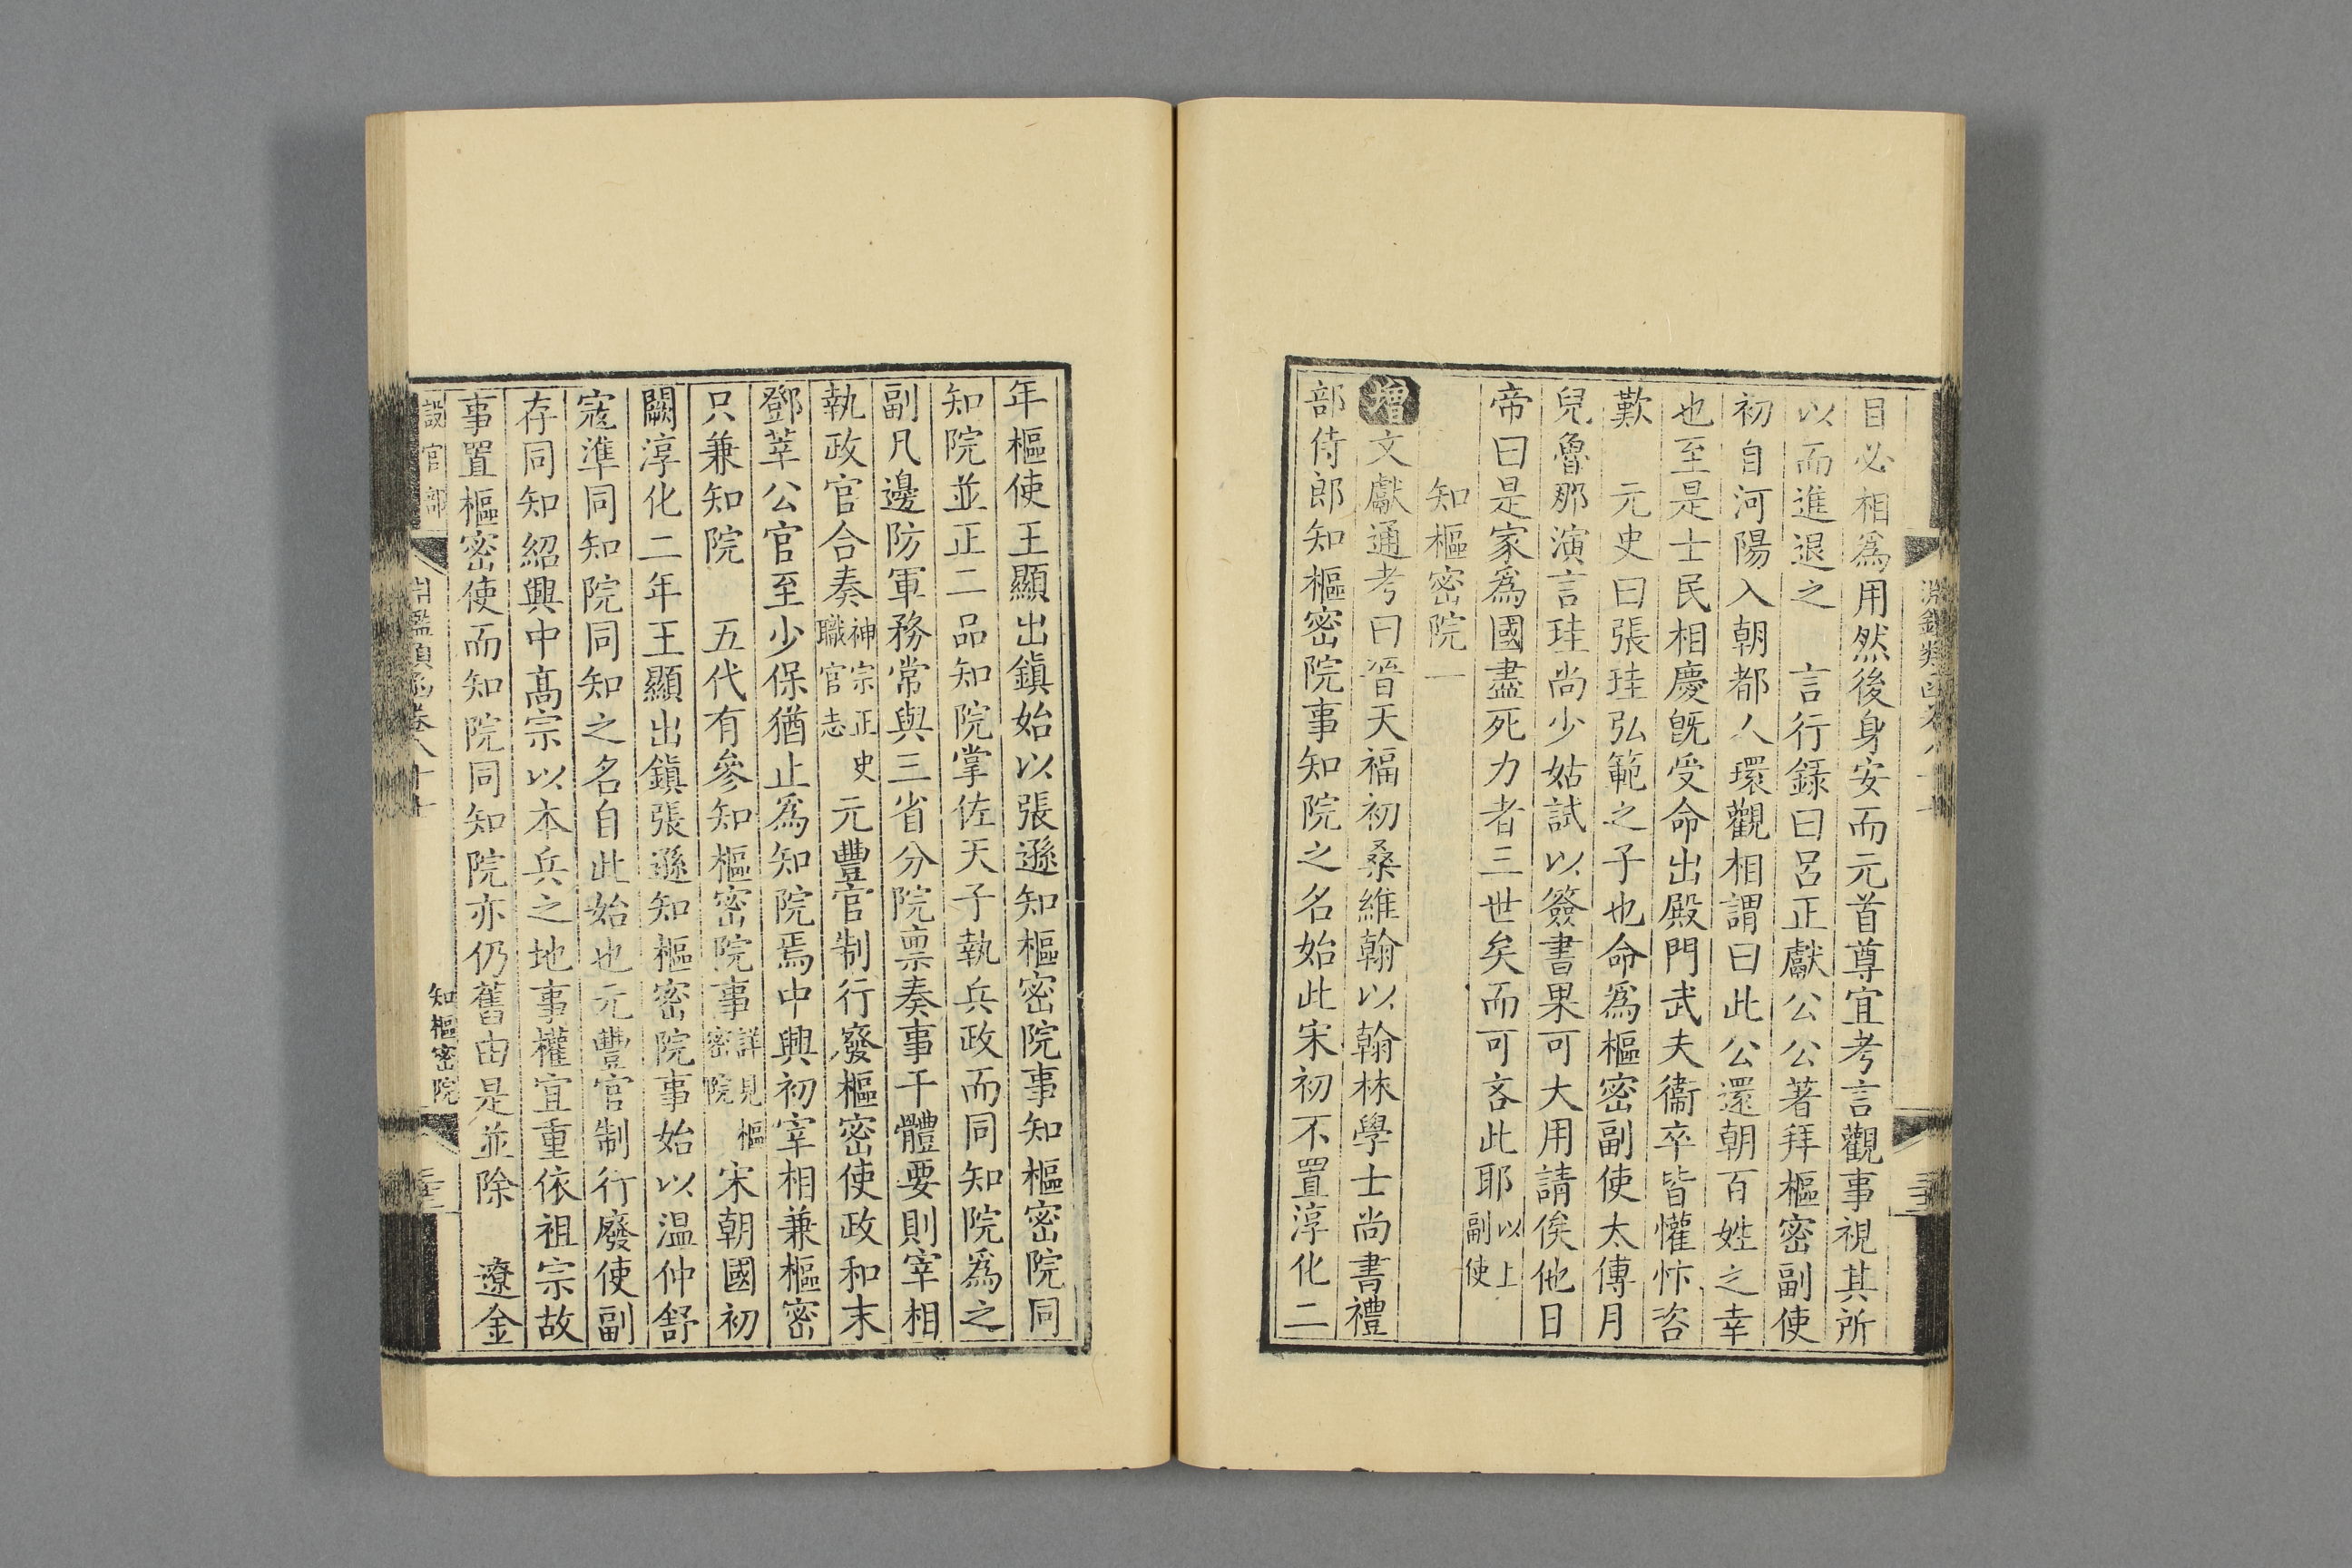 目必相爲用然後身安而元首尊宜考言觀事視其所
以而進退之　言行錄曰呂正獻公公著拜樞密副使
初自河陽入朝都人環觀相謂曰此公還朝百姓之幸
也至是士民相慶旣受命出殿門武夫衞卒皆懽忭咨
歎　元史曰張珪弘範之子也命爲樞密副使太傅月
兒魯那演言珪尚少姑試以簽書果可大用請俟他日
帝曰是家爲國盡死力者三世矣而可吝此耶以上副使
知樞密院一
增文獻通考曰晉天福初桑維翰以翰林學士尚書禮
部侍郎知樞密院事知院之名始此宋初不置淳化二
年樞使王顯出鎭始以張遜知樞密院事知樞密院同
知院並正二品知院掌佐天子執兵政而同知院爲之
副凡邊防軍務常與三省分院禀奏事干體要則宰相
執政官合奏神宗正史職官志　元豐官制行廢樞密使政和末
鄧莘公官至少保猶止爲知院焉中興初宰相兼樞密
只兼知院　五代有參知樞密院事詳見樞密院　宋朝國初
闕淳化二年王顯出鎭張遜知樞密院事始以温仲舒
寇準同知院同知之名自此始也元豐官制行廢使副
存同知紹興中高宗以本兵之地事權宜重依祖宗故
事置樞密使而知院同知院亦仍舊由是並除　遼金
設官部
淵鑑類函卷八十七
知樞密院